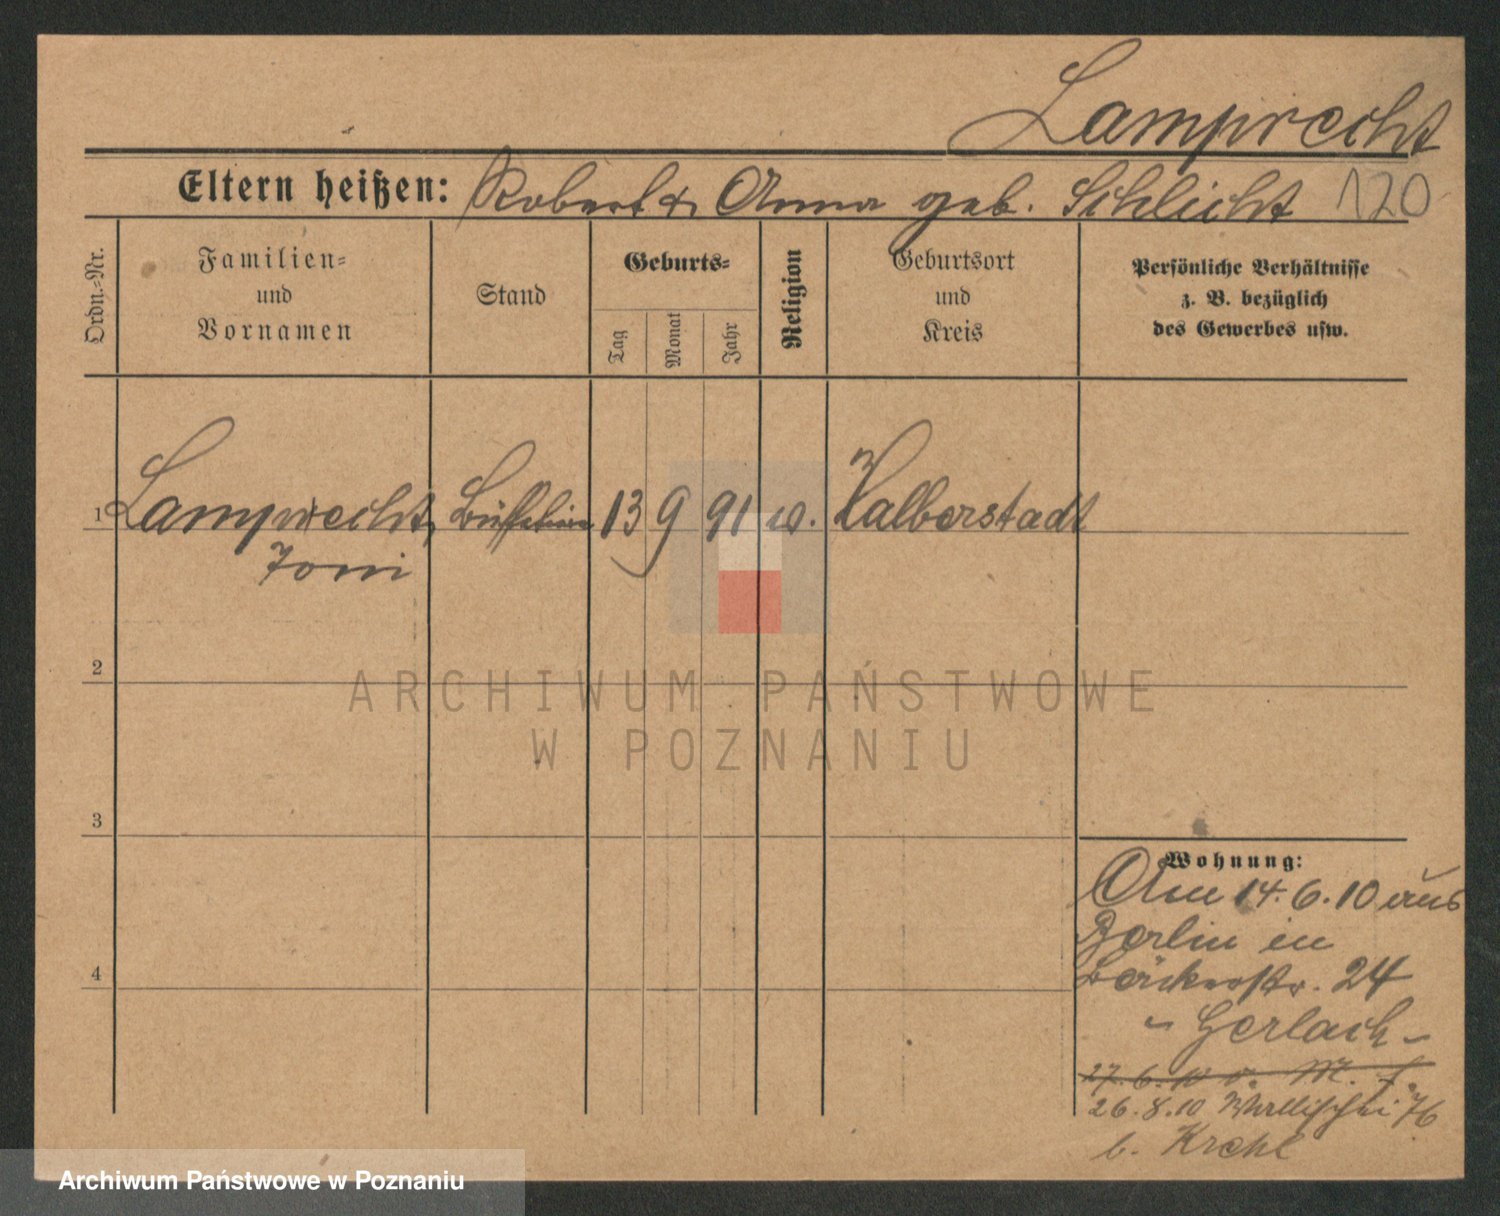 Lamprecht
Eltern heißen: Robert & Anna geb. Schlicht 120
Ordn.-Nr.
Familien-
und
Vornamen
Stand
Geburts-
Tag
Monat
Jahr
Religion
Geburtsort
und
Kreis
Persönliche Verhältnisse
z. B. bezüglich
des Gewerbes usw.
1 Lamprecht, 13 9 91 Halberstadt
Toni
2
3
4
Wohnung:
Am 14.6.10 aus
Berlin in
Bäckerstr. 24
- Gerlach -
27.6.10 v. M.
26.8.10 Wallischei 76
b. Krehl
ARCHIWUM PAŃSTWOWE
W POZNANIU
Archiwum Państwowe w Poznaniu